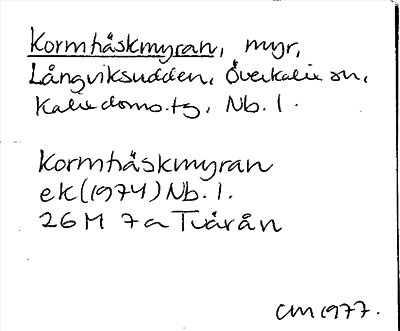 Kormhåskmyran, myr,
Långviksudden, Överkalix sn,
Kalix doms.tg, Nb. l.
Kormhåskmyran
ek (1974) Nb. l.
26 M 7a Tvärån
CM 1977.